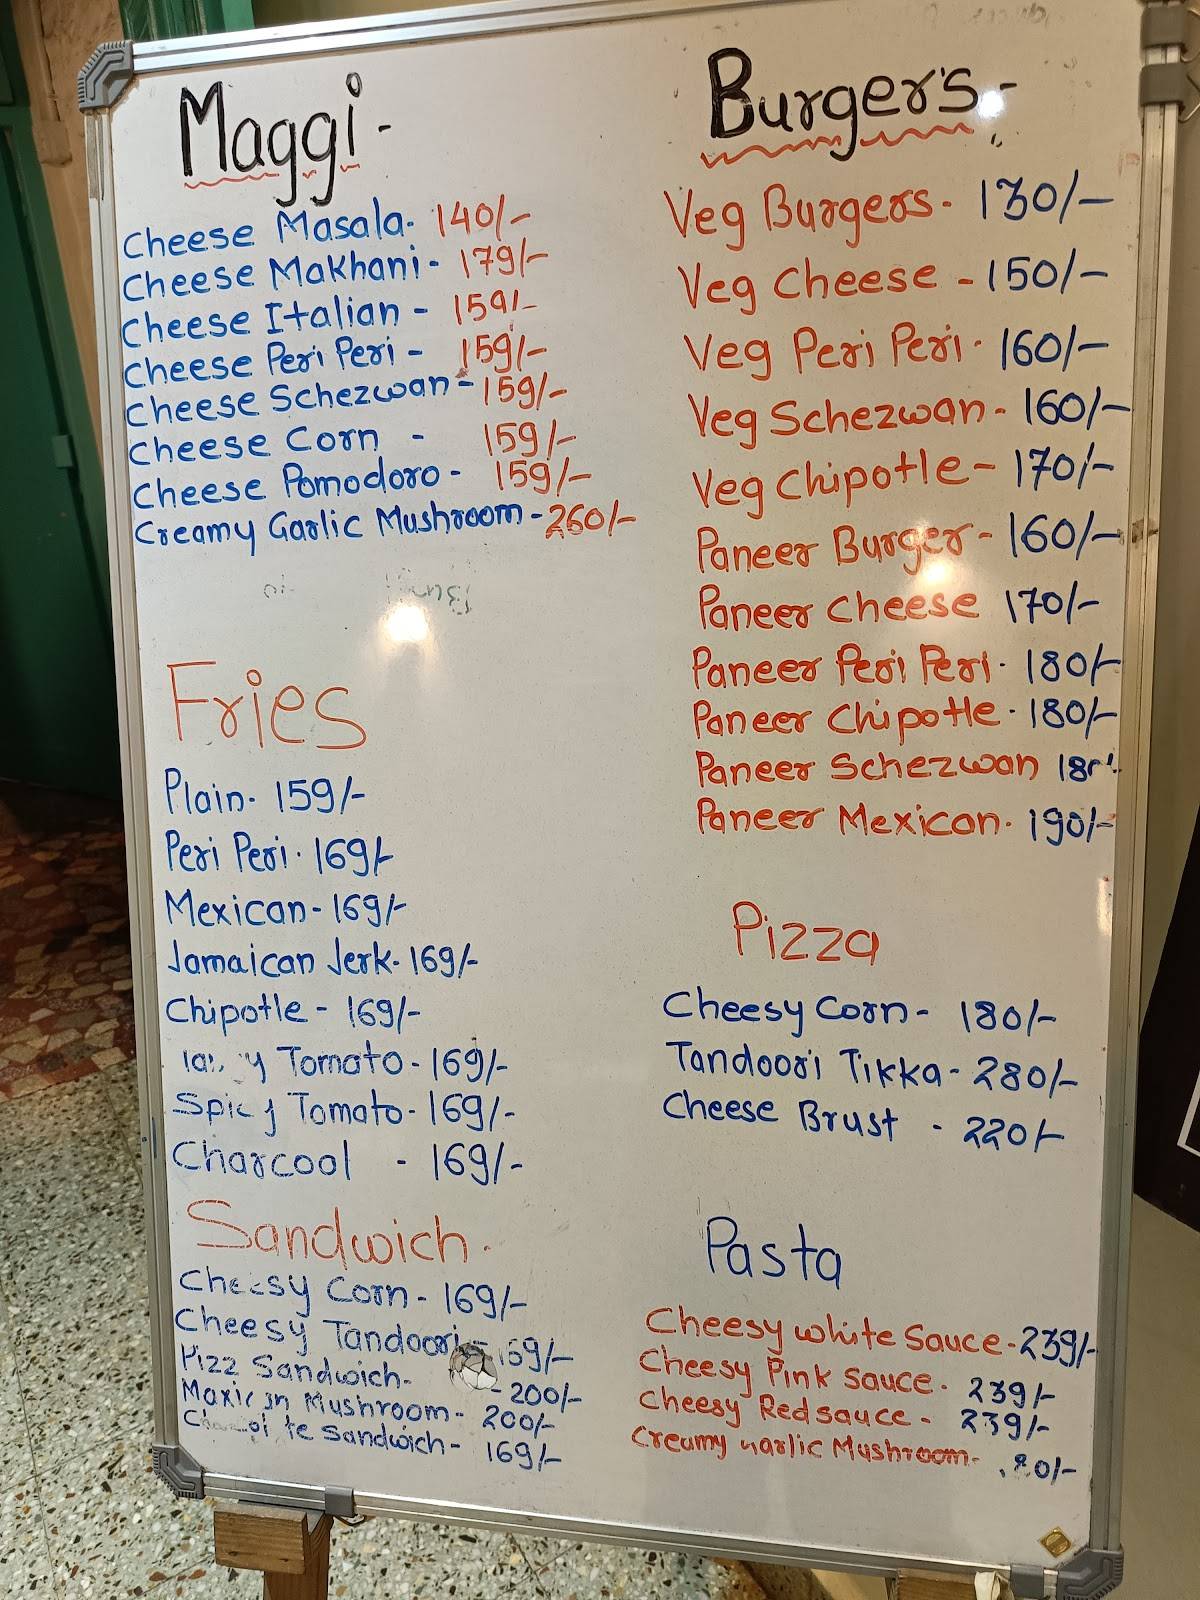 Maggi -
Cheese Masala- 140/-
Cheese Makhani - 179/-
Cheese Italian - 159/-
Cheese Peri Peri - 159/-
Cheese Schezwan - 159/-
Cheese Corn - 159/-
Cheese Pomodoro - 159/-
Creamy Garlic Mushroom - 260/-
Fries
Plain- 159/-
Peri Peri- 169/-
Mexican- 169/-
Jamaican Jerk- 169/-
Chipotle - 169/-
Tomato - 169/-
Spicy Tomato- 169/-
Charcoal - 169/-
Sandwich.
Cheesy Corn - 169/-
Cheesy Tandoori - 69/-
Pizz Sandwich- - 200/-
Mushroom- 200/-
Sandwich - 169/-
Burger's -
Veg Burgers- 130/-
Veg Cheese - 150/-
Veg Peri Peri- 160/-
Veg Schezwan- 160/-
Veg Chipotle - 170/-
Paneer Burger - 160/-
Paneer Cheese 170/-
Paneer Peri Peri- 180/-
Paneer Chipotle - 180/-
Paneer Schezwan
Paneer Mexican- 190/-
Pizza
Cheesy Corn- 180/-
Tandoori Tikka - 280/-
Cheese Brust - 220/-
Pasta
Cheesy white Sauce - 239/-
Cheesy Pink Sauce - 239/-
Cheesy Red sauce - 239/-
Creamy Garlic Mushroom-